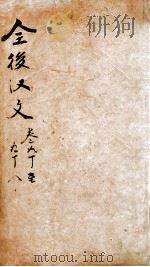 全後汉文
卷之九十至
九十八